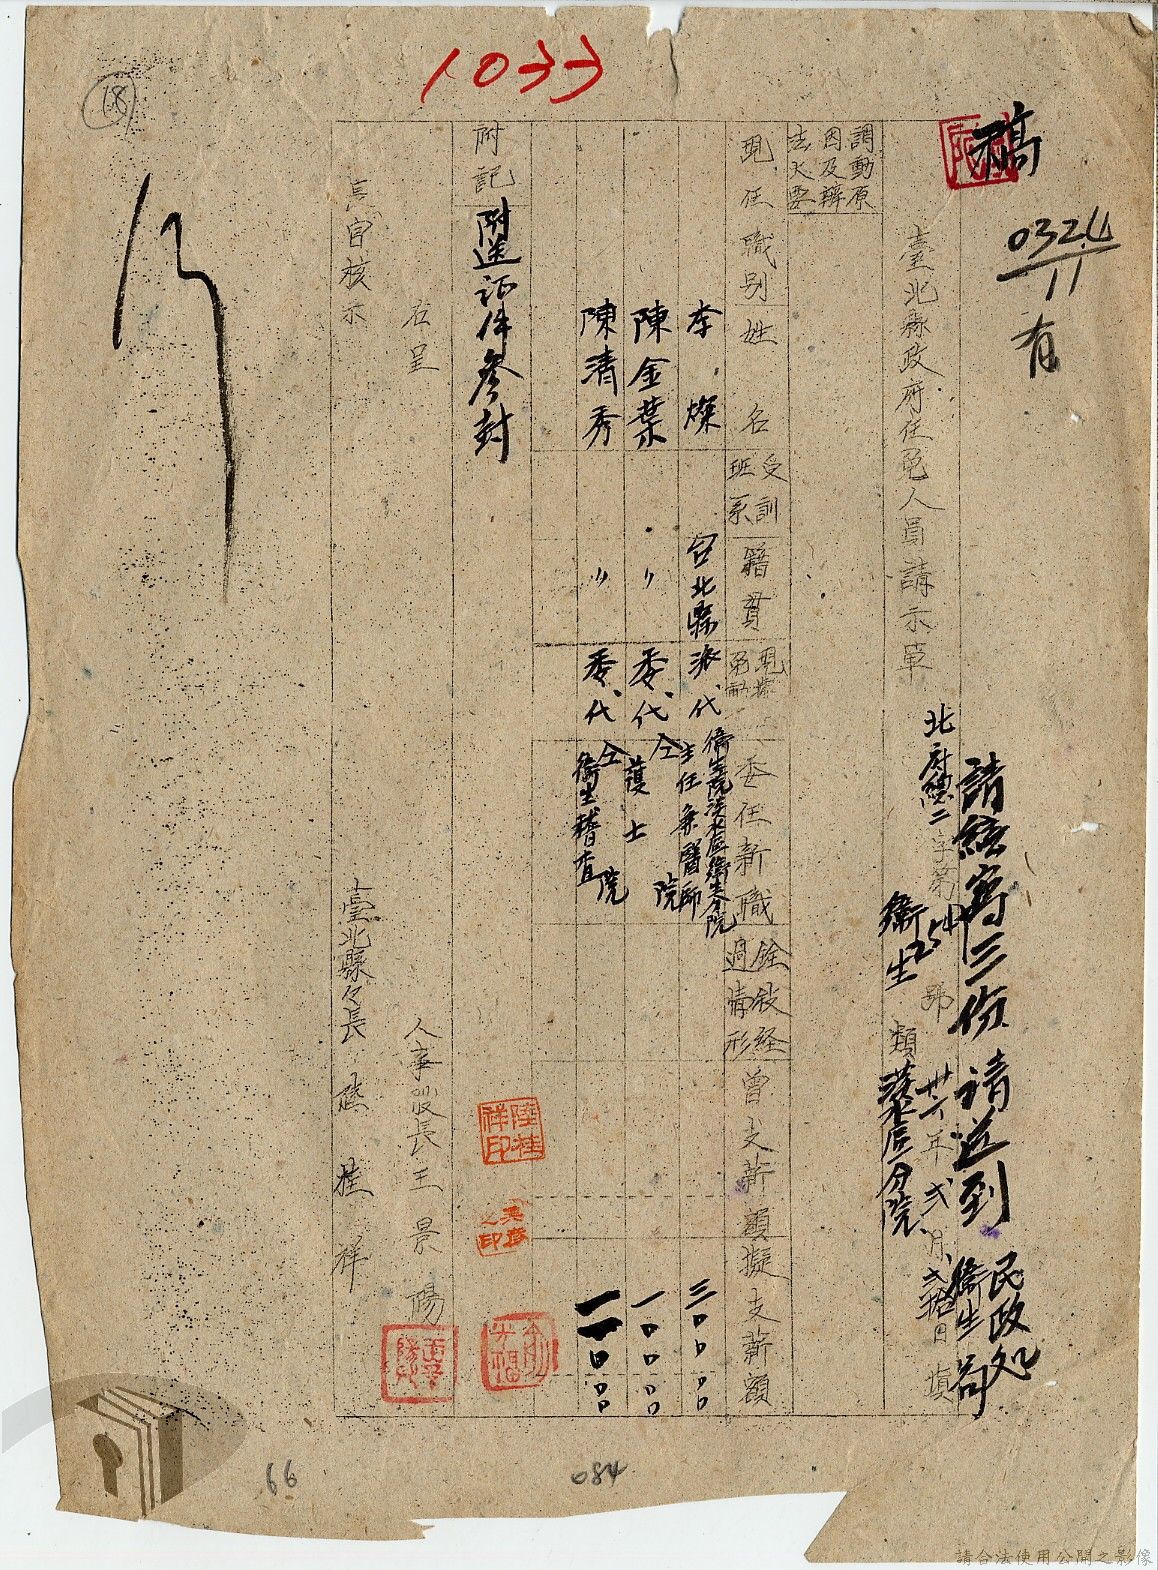 1033
18
稿
0324
11
有
請繕寫三份 請送到 民政処
衛生局
臺北縣政府任免人員請示單
北府總二字第254號 卅六年弍月弍拾日填
衛生類 淡水區分院
調動原因及辦法大要
現任職別 姓名 受訓班系 籍貫 現撰免動 委任新職 銓敍経過情形 曾支薪額 擬支薪額
李燦 台北縣 派代 衛生院淡水區衛生分院主任兼醫師 三〇〇〇〇
陳金葉 〃 委代 仝院護士 一〇〇〇〇
陳清秀 〃 委代 仝院衛生稽查 一一〇〇〇
附記 附送证件參封
右呈
長官核示
人事股長王景陽
臺北縣々長陸桂祥
陸桂祥印
之印
66
084
請合法使用公開之影像